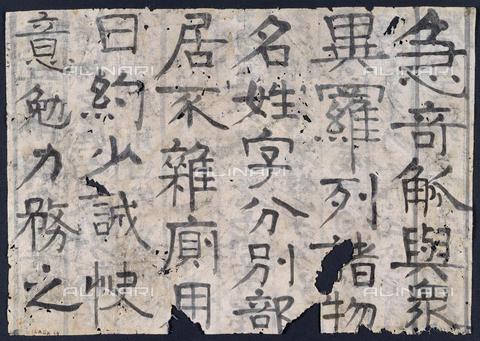 急奇觚與衆
異羅列諸物
名姓字分別部
居不雜廁用
日約少誠快
意勉力務之
ALINARI
ALINARI
ALINARI
ALINARI
ALINARI